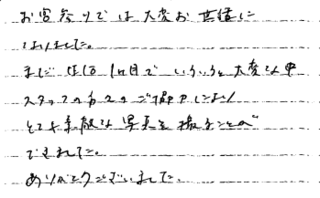 お宮参りでは大変お世話に
なりました。
まだ生後1ヶ月でいろいろと大変な中
スタッフの方々のご協力により
とても素敵な写真を撮ることが
できました。
ありがとうございました。